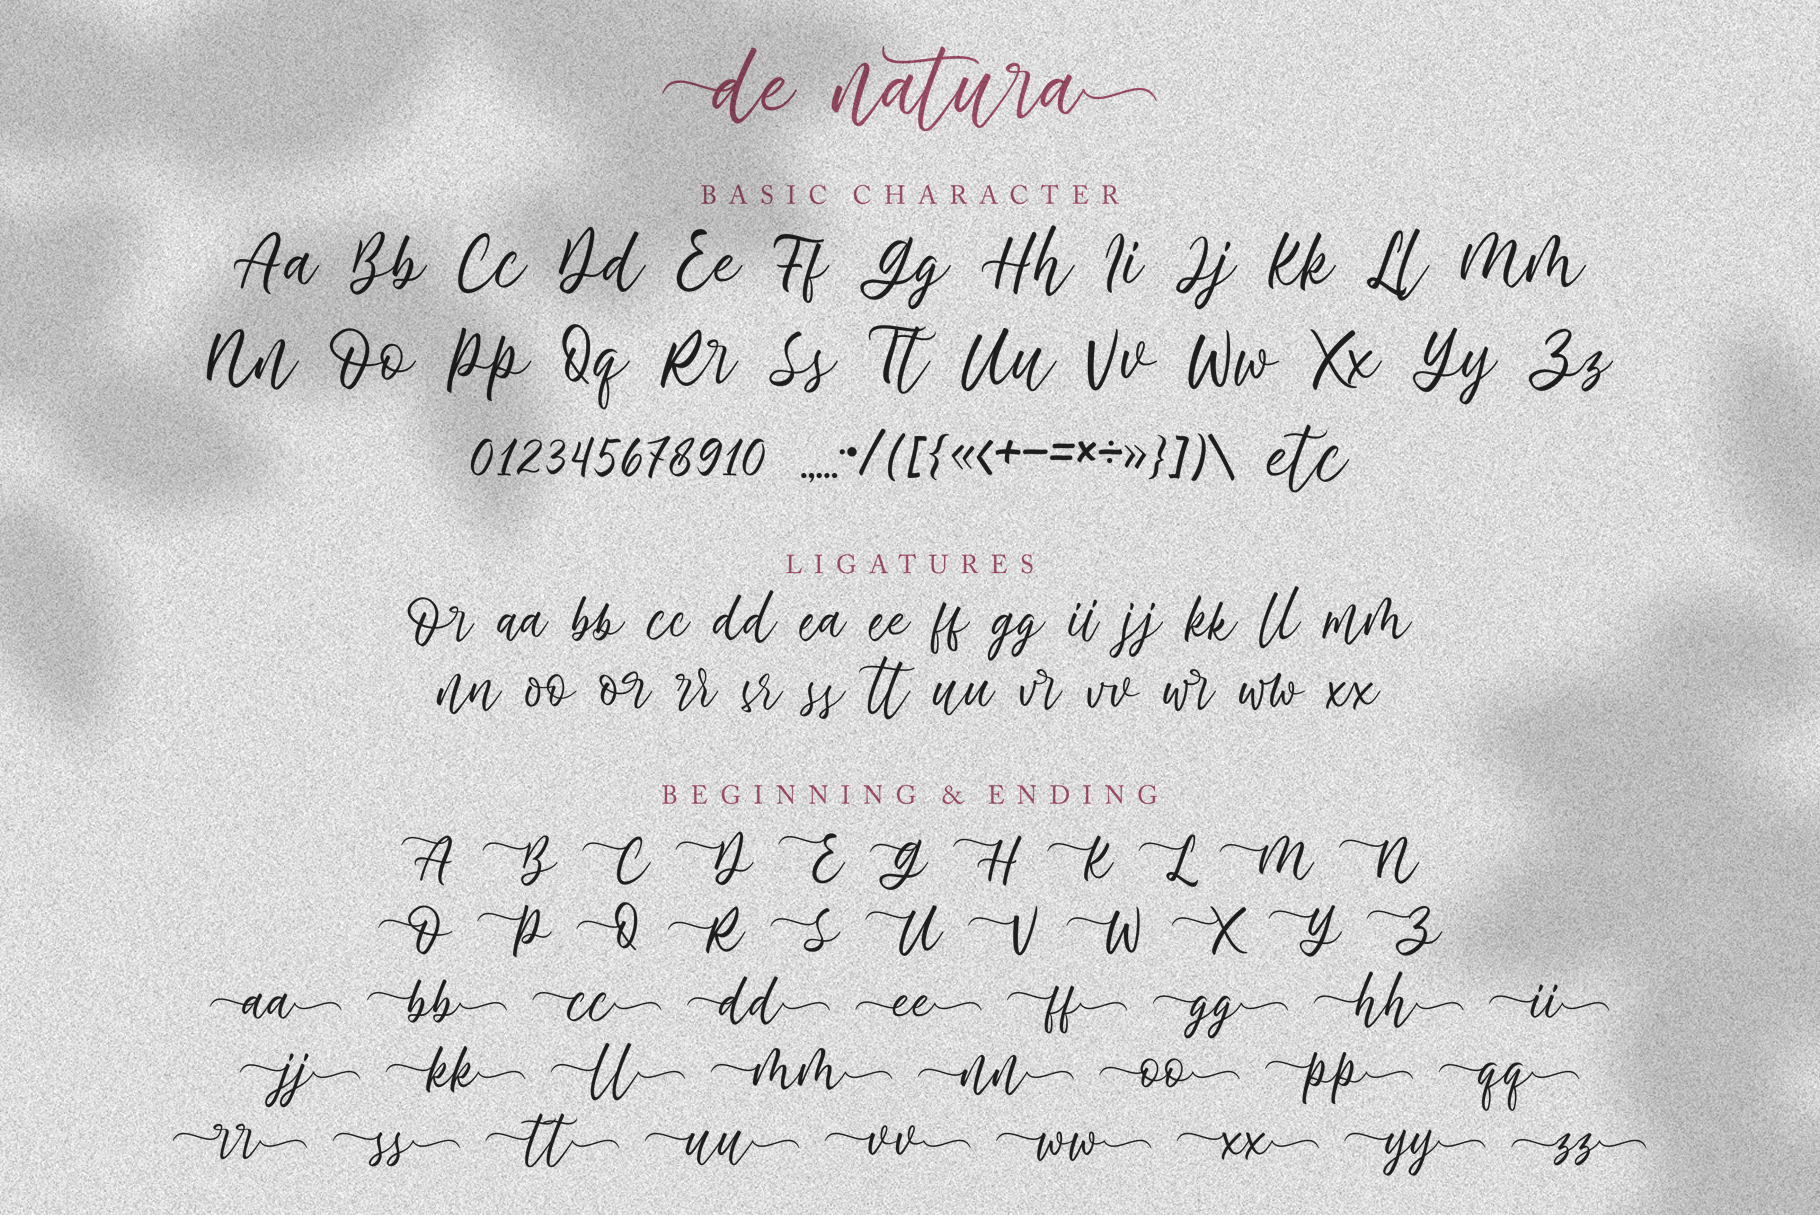 de natura
BASIC CHARACTER
Aa Bb Cc Dd Ee Ff Gg Hh Ii Jj Kk Ll Mm
Nn Oo Pp Qq Rr Ss Tt Uu Vv Ww Xx Yy Zz
012345678910 .,...·•/([{«‹+−=×÷»}])\ etc
LIGATURES
Or aa bb cc dd ea ee ff gg ii jj kk ll mm
nn oo or rr sr ss tt uu vr vv wr ww xx
BEGINNING & ENDING
A B C D E G H K L M N
O P Q R S U V W X Y Z
aa bb cc dd ee ff gg hh ii
jj kk ll mm nn oo pp qq
rr ss tt uu vv ww xx yy zz